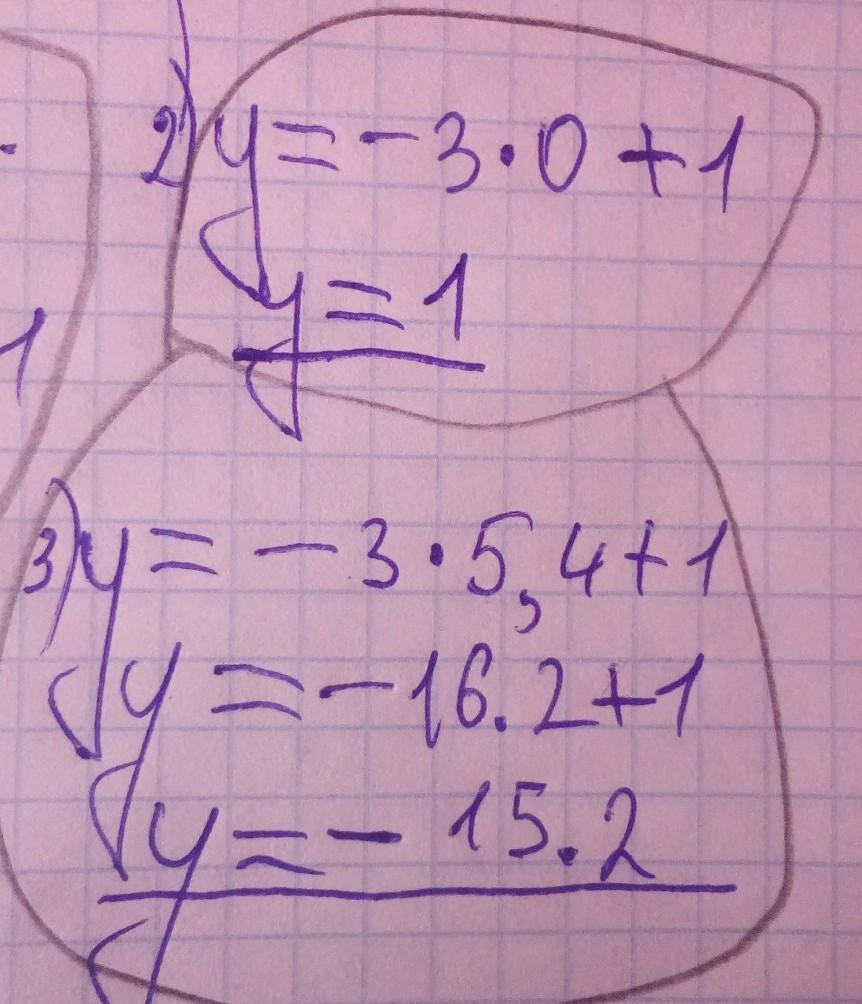 2) y = -3·0 + 1
y = 1
1
3) y = -3·5,4+1
y = -16.2+1
y = -15.2